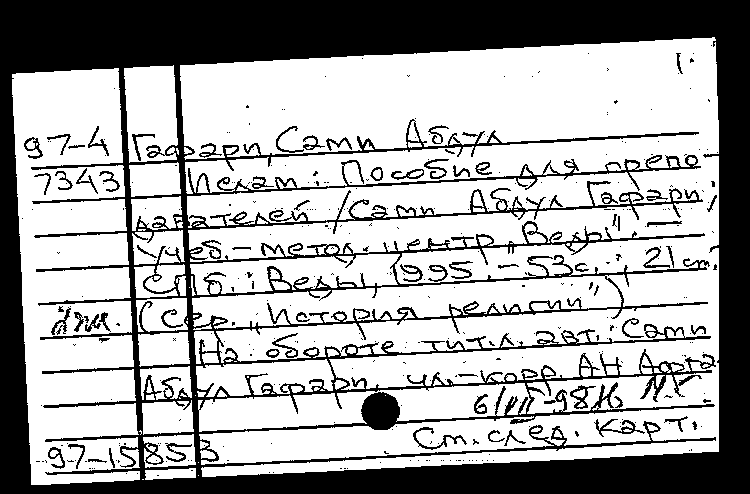 1.
97-4 Гафари, Сами Абдул
7343 Ислам : Пособие для препо-
давателей / Сами Абдул Гафари;
Учеб.-метод. центр "Веды". —
СПб. : Веды, 1995. - 53с. ; 21 см.
(Сер. "История религии")
На обороте тит. л. авт.: Сами
Абдул Гафари, чл.-корр. АН Афга-
6/VII-98
97-15853 См. след. карт.